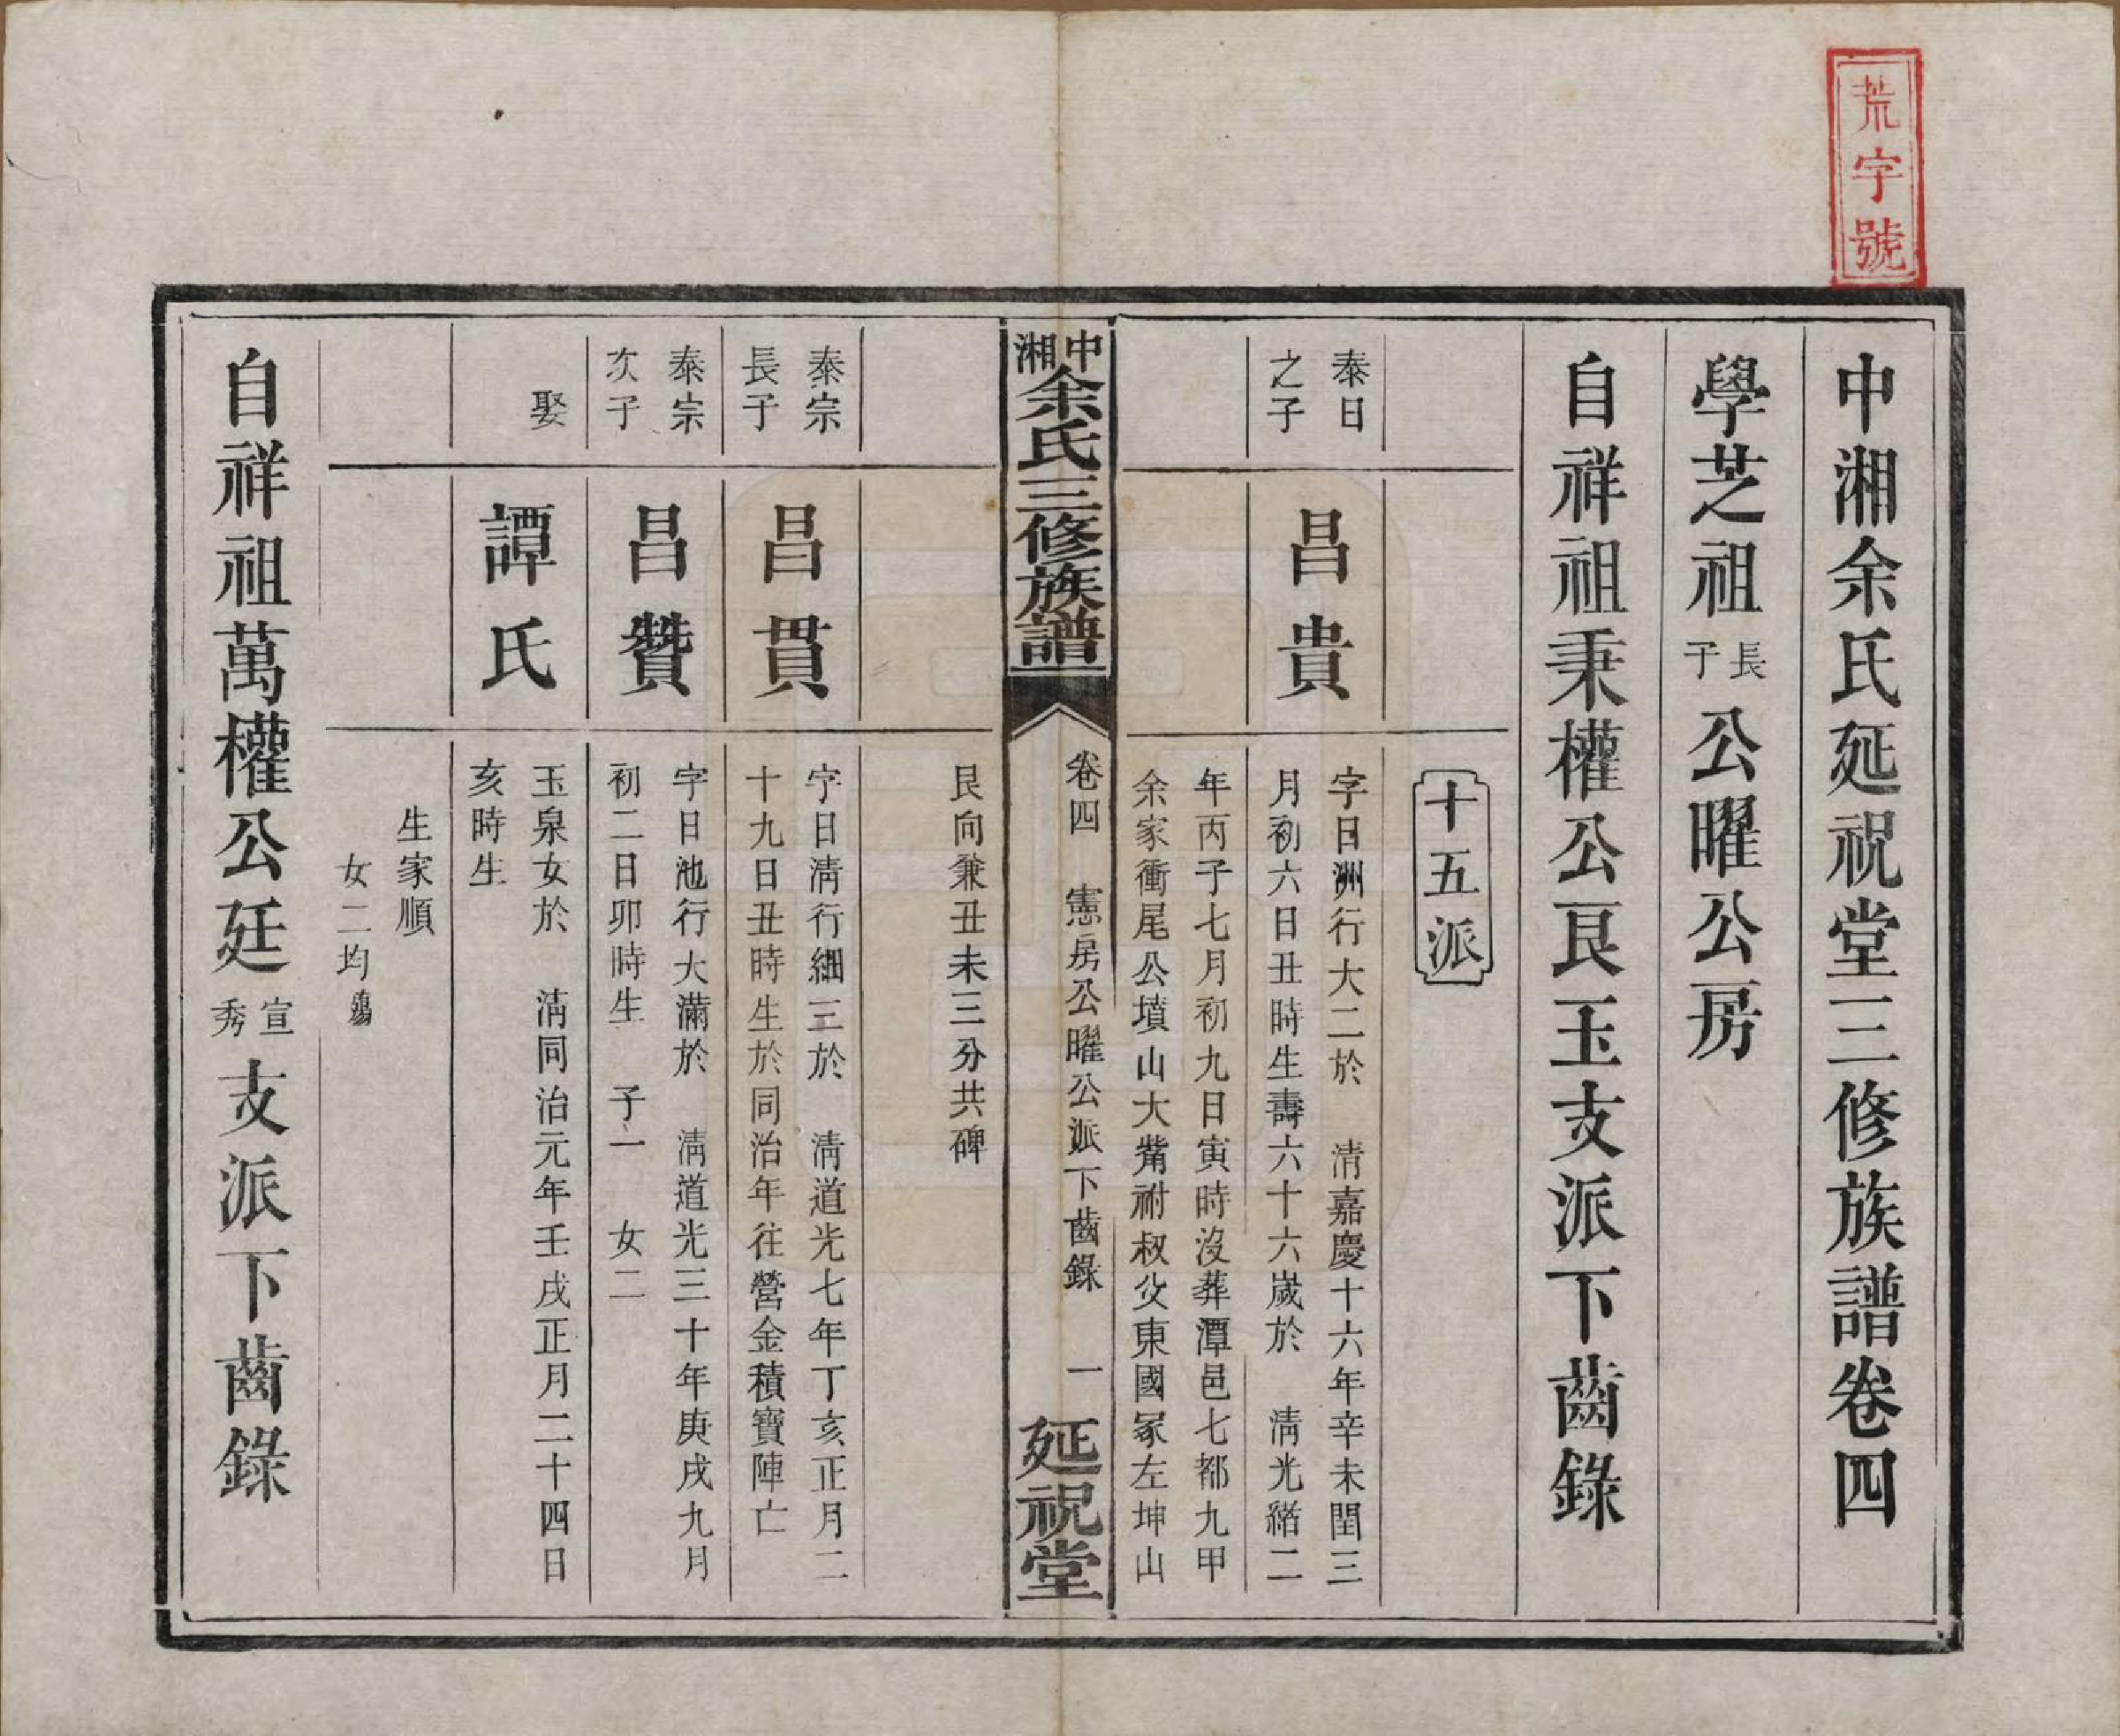 荒字號
中湘余氏延祝堂三修族譜卷四
學芝祖長子公曜公房
自祥祖秉權公艮玉支派下齒錄
十五派
泰日
之子
昌貴
字日洲行大二於　清嘉慶十六年辛未閏三
月初六日丑時生壽六十六歲於　清光緒二
年丙子七月初九日寅時沒葬潭邑七都九甲
余家衝尾公墳山大觜祔叔父東國冢左坤山
中湘余氏三修族譜
卷四　憲房公曜公派下齒錄　一
延祝堂
艮向兼丑未三分共碑
泰宗
長子
昌貫
字日清行細三於　清道光七年丁亥正月二
十九日丑時生於同治年往營金積寶陣亡
泰宗
次子
昌贊
字日池行大滿於　清道光三十年庚戌九月
初二日卯時生　子一　女二
娶
譚氏
玉泉女於　清同治元年壬戌正月二十四日
亥時生
生家順
女二均殤
自祥祖萬權公廷宣秀支派下齒錄